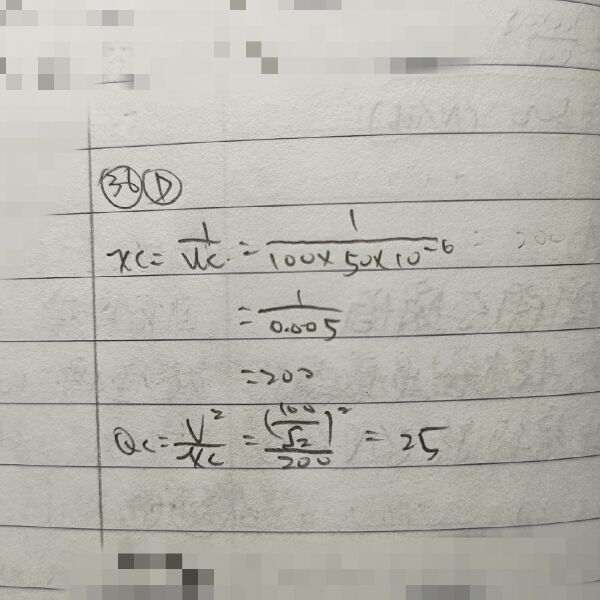 36 D
XC = 1/WC = 1/(100 × 50 × 10^-6)
= 1/0.005
= 200
QC = V²/XC = (100/√2)²/200 = 25